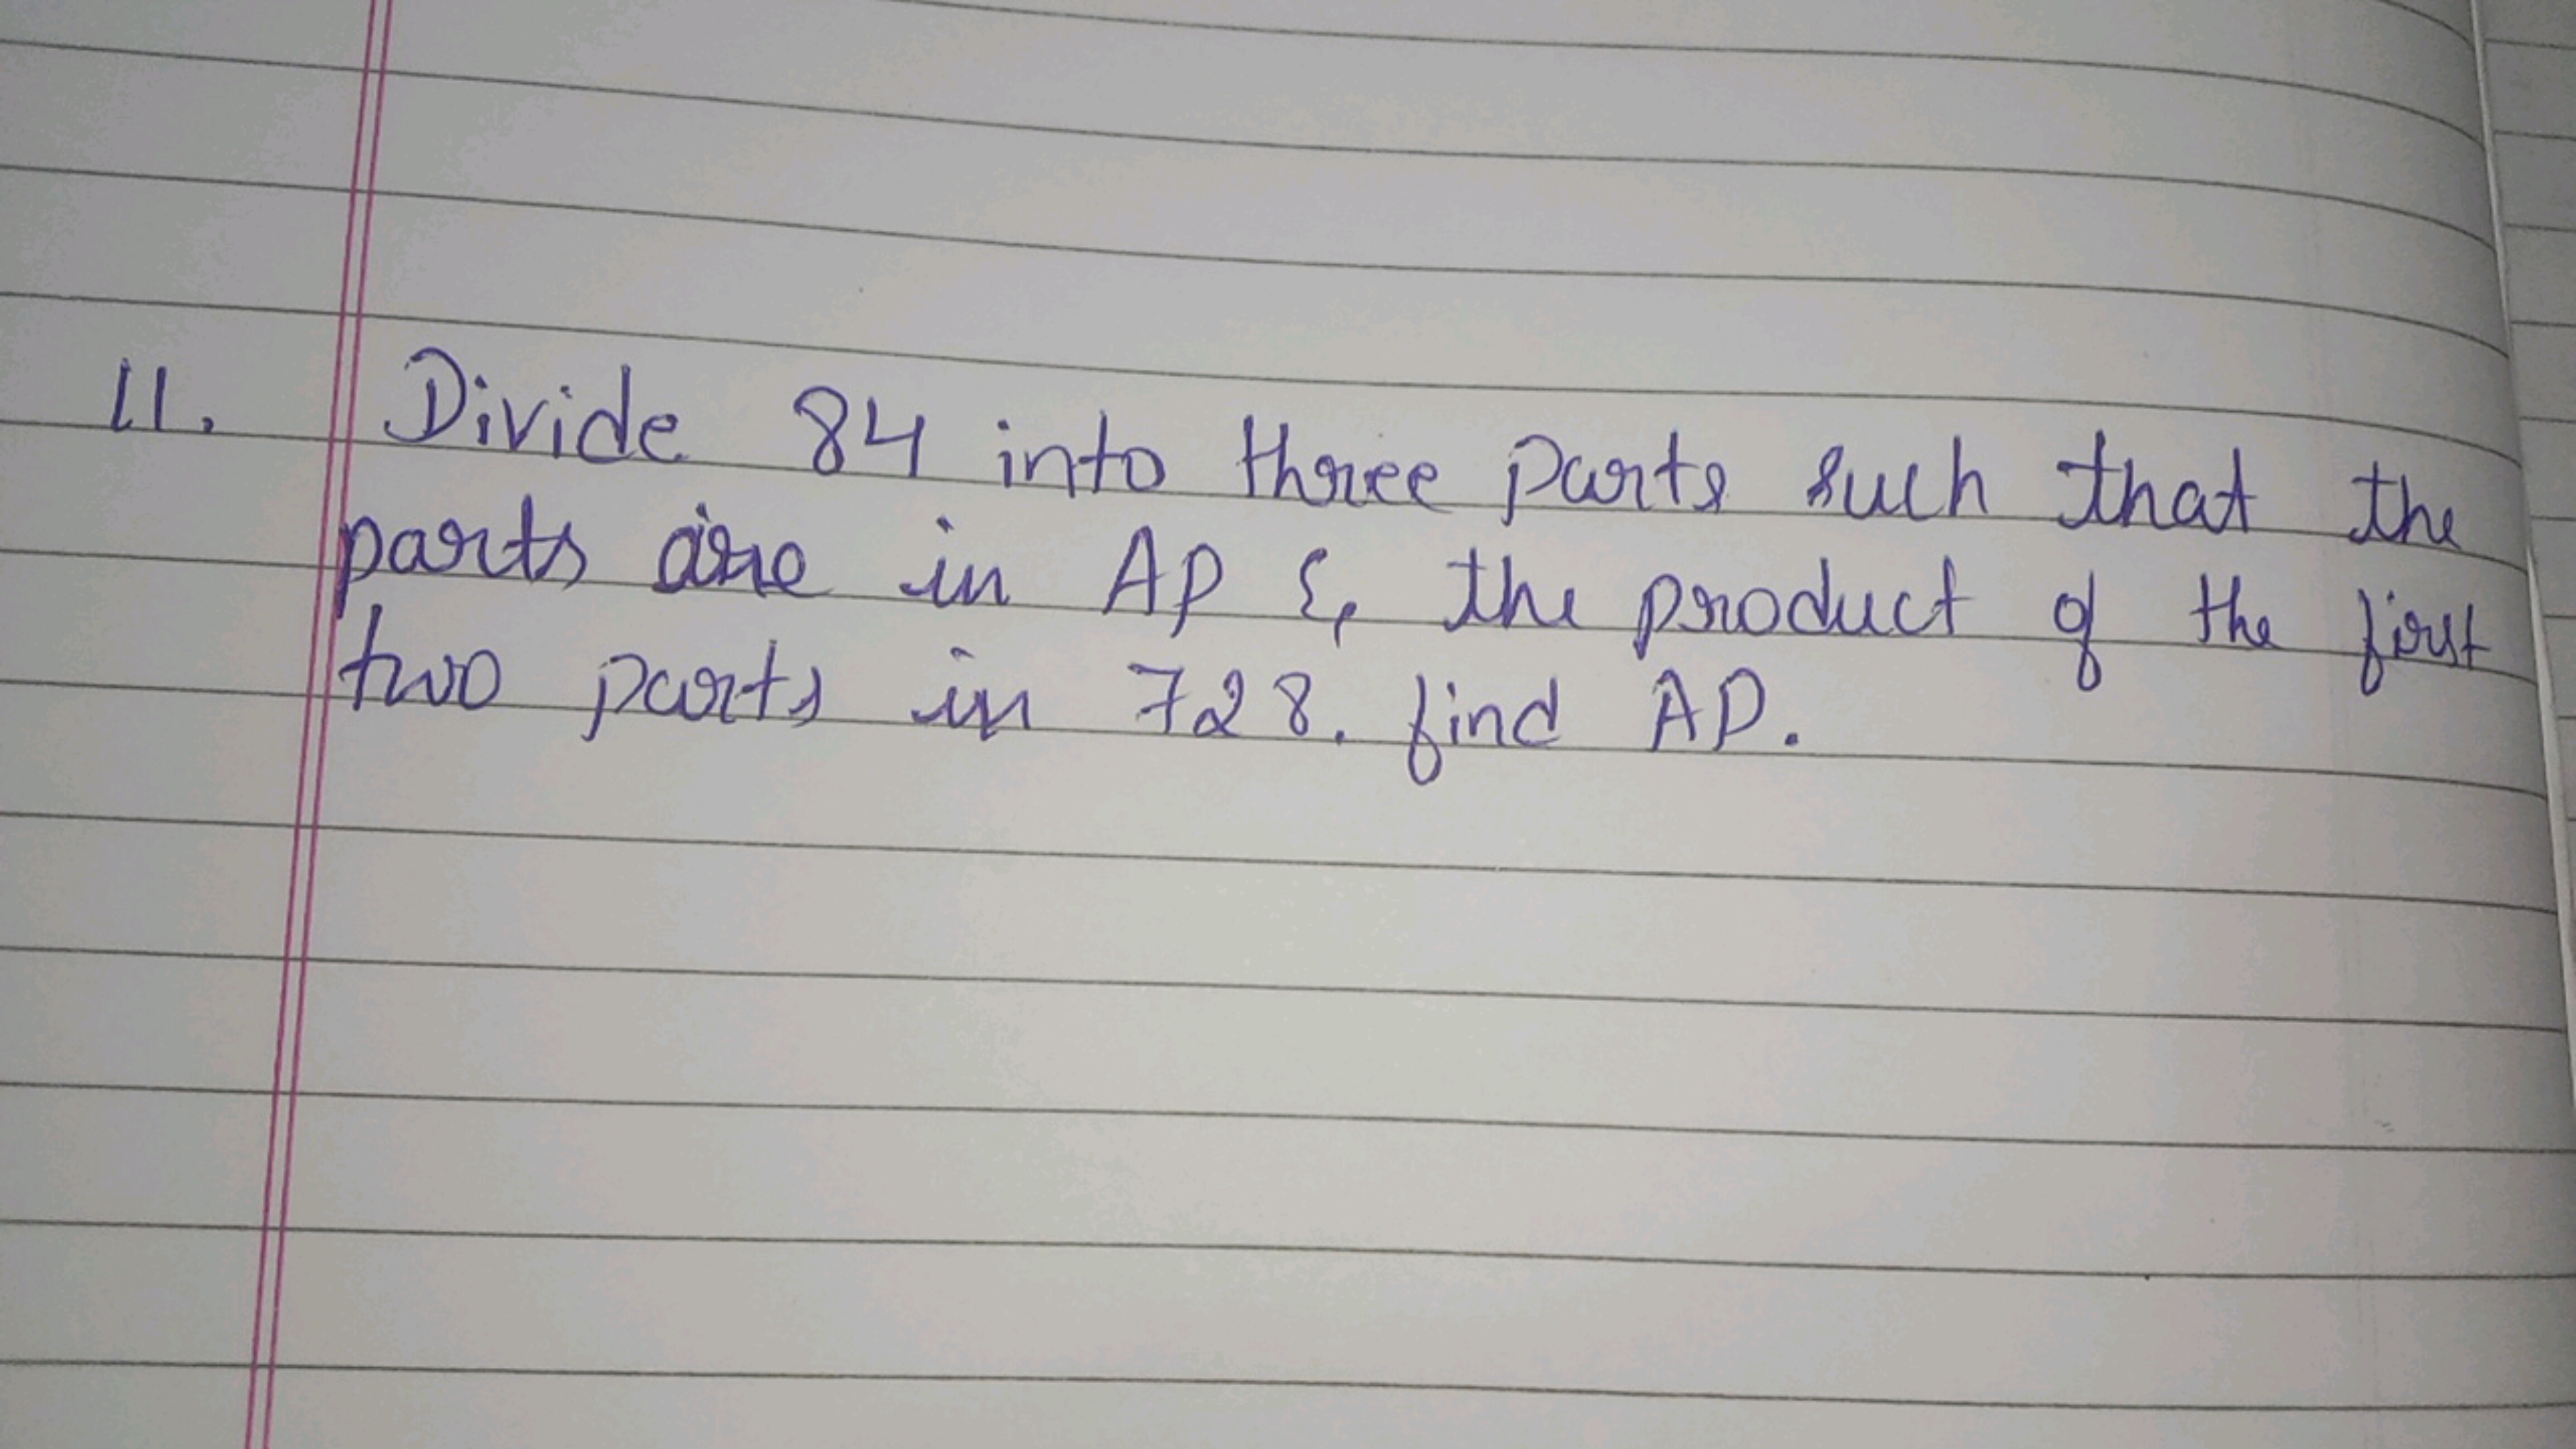 11. Divide 84 into three parts such that the
parts are in AP & the product of the first
two parts in 728. find AP.